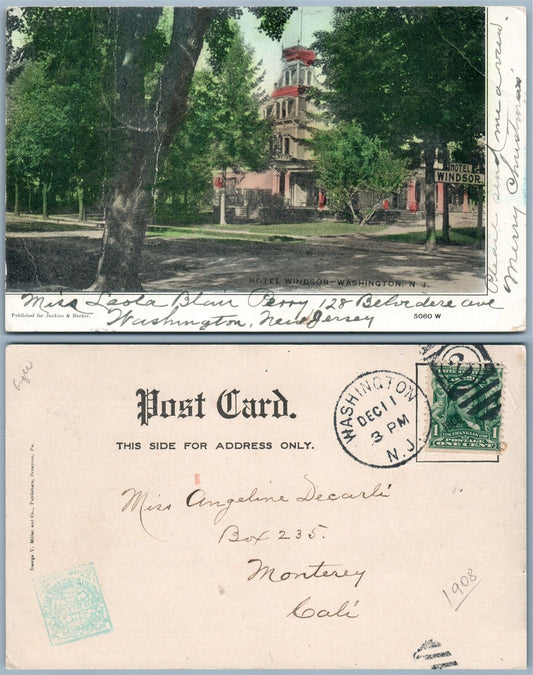 HOTEL
WINDSOR
HOTEL WINDSOR-WASHINGTON, N. J.
Please send me a view
Merry Christmas
Miss Leola Blair Perry 128 Belvedere ave
Washington, New Jersey
Published for Jenkins & Mosher.
5060 W
Post Card.
THIS SIDE FOR ADDRESS ONLY.
WASHINGTON
DEC 11
3 PM
N.J.
POSTAGE
ONE CENT
1
George T. Miller and Co., Publishers, Scranton, Pa.
Miss Angeline Decarli
Box 235.
Monterey
Cali
1908